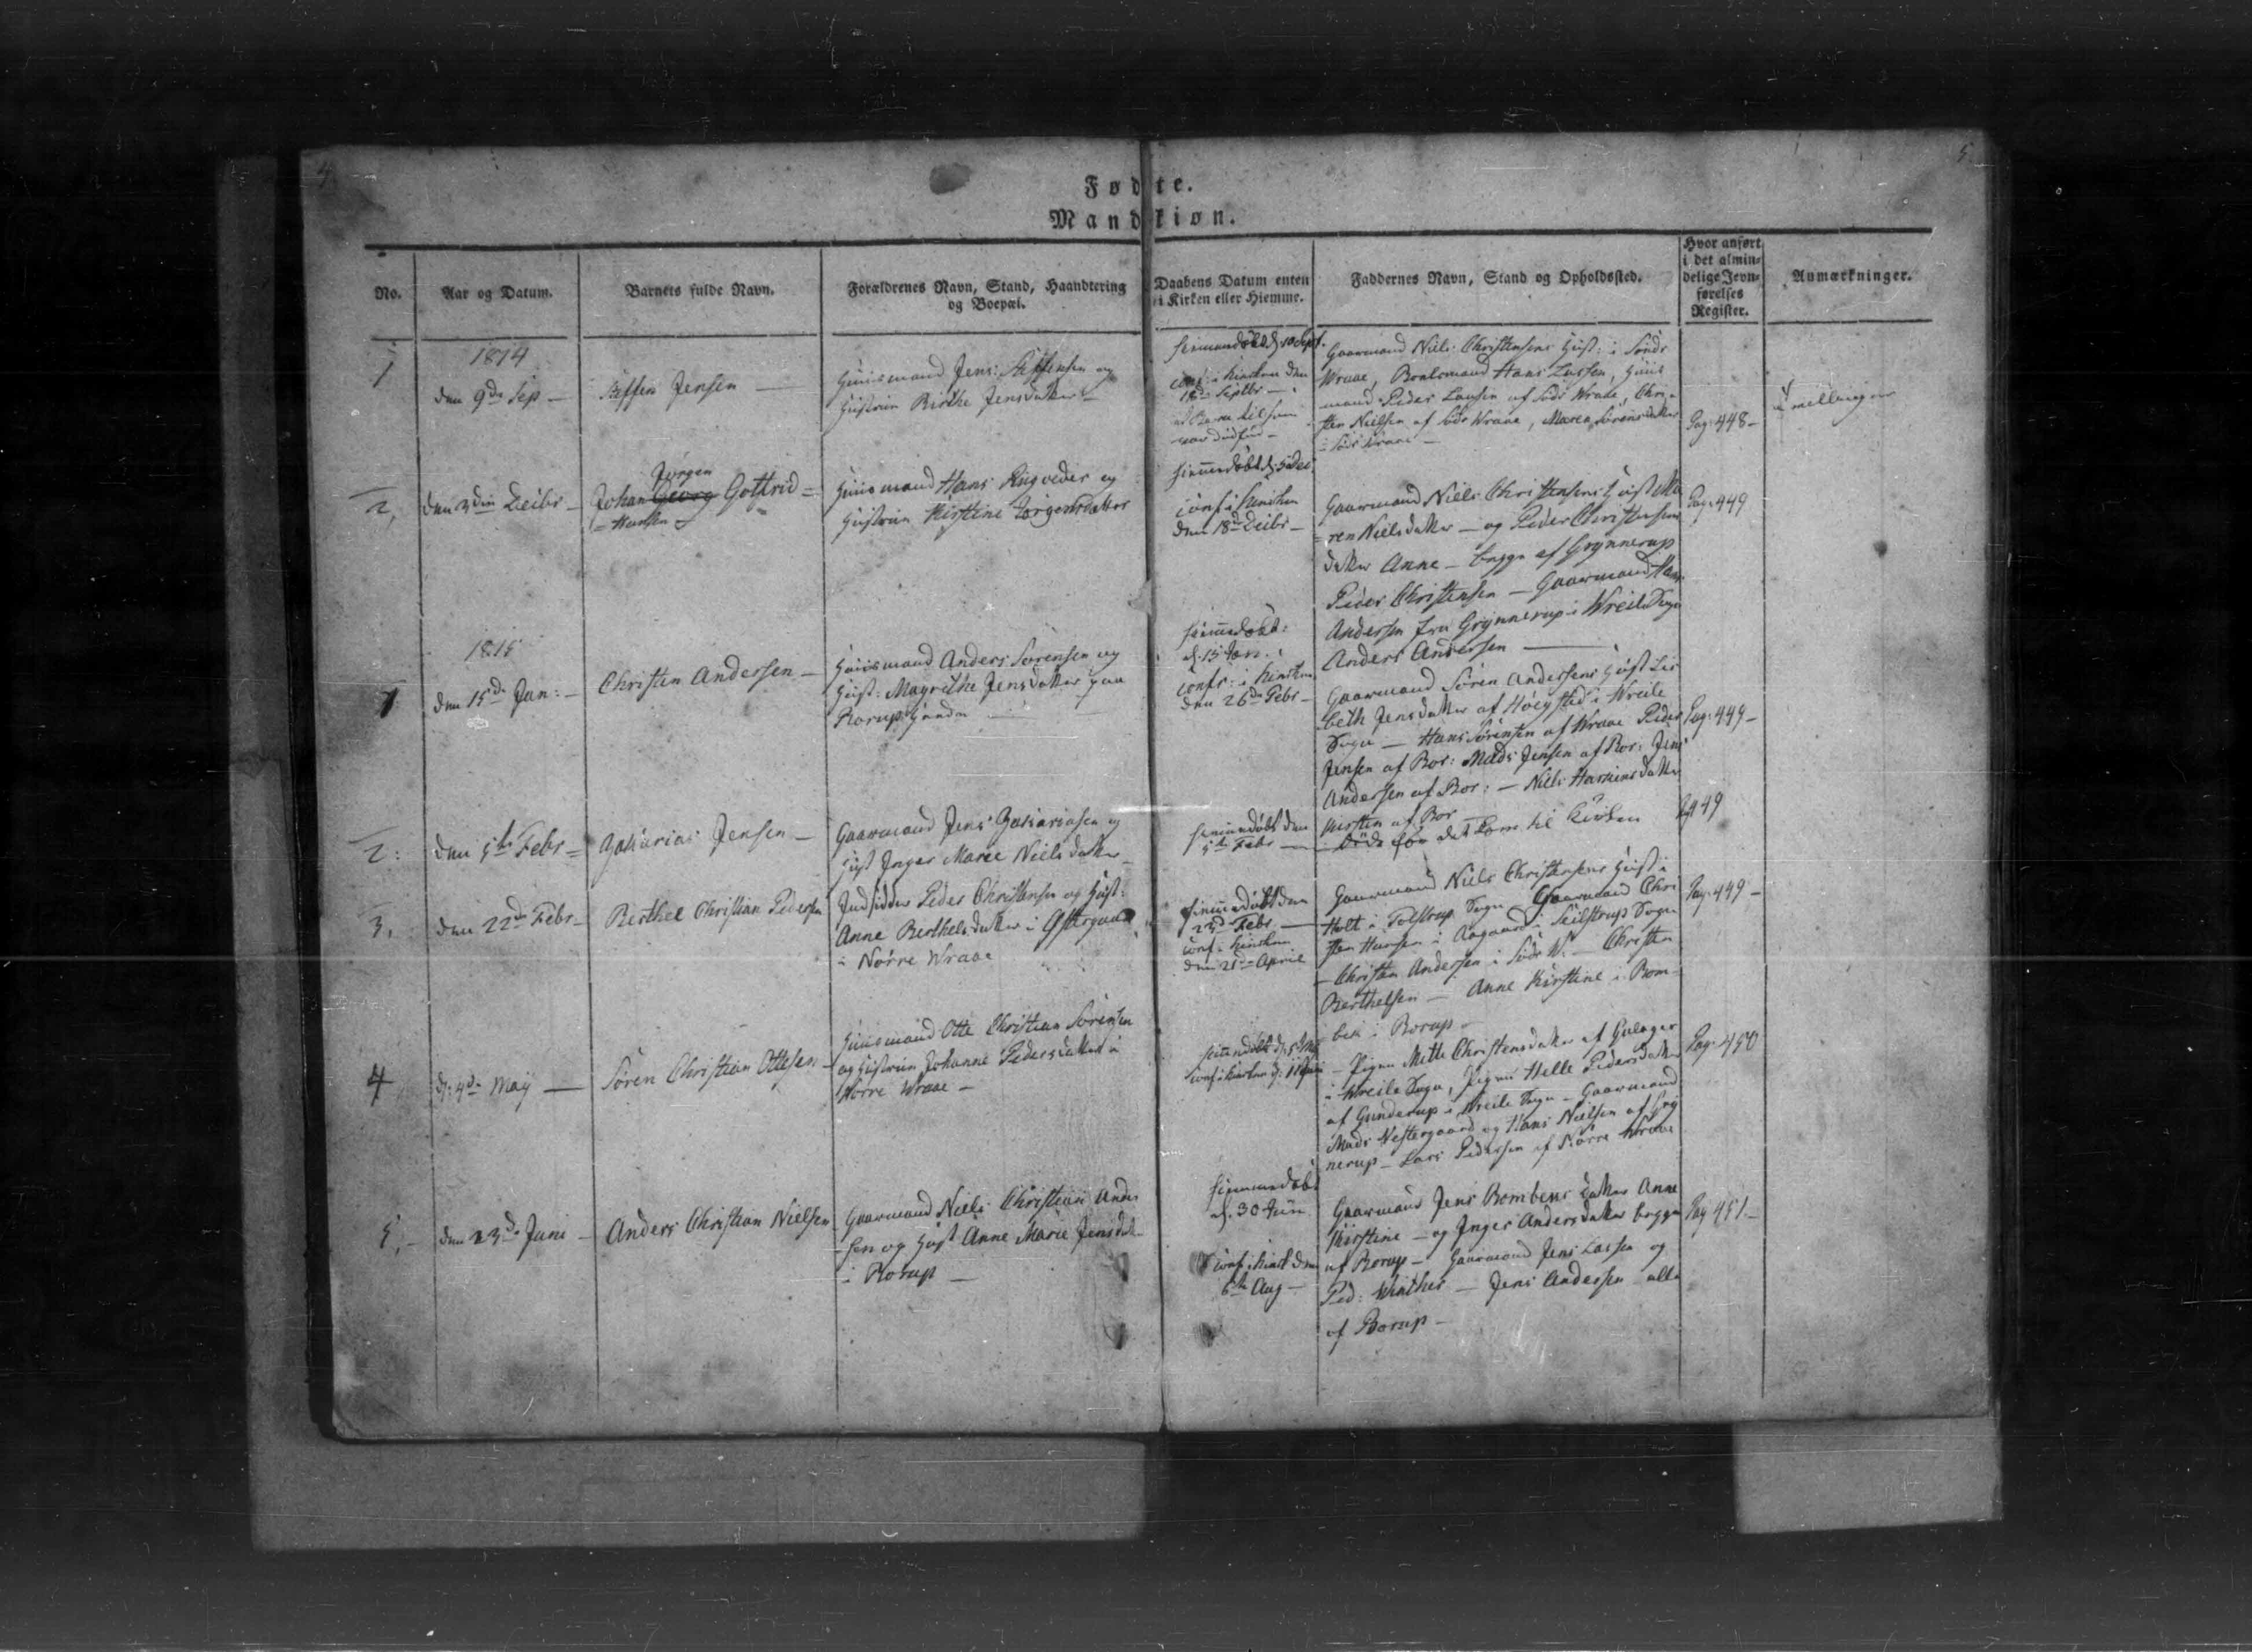 4.
5
Fødte.
Mandkiøn.
No.
Aar og Datum.
Barnets fulde Navn.
Forældrenes Navn, Stand, Haandtering
og Boepæl.
Daabens Datum enten
i Kirken eller Hiemme.
Faddernes Navn, Stand og Opholdssted.
Hvor anført
i det almin-
delige Jevn-
førelses
Register.
Anmærkninger.
1
1814
den 9de Sep –
Steffen Jensen –
Huusmand Jens Steffensen og
Hustrue Birthe Jensdatter –
hiemmedøbt d. 10 Sept.
conf. i Kirken den
18de Septbr –
Gaarmand Niels Christensens Hust: i Søndr
Wraae, Boelsmand Hans Lassen, Huus
mand Peder Lausen af Södr Wraae, Chri-
sten Nielsen af Södr Wraae, Maren Sørensdatter
i Södr Wraae –
Pag: 448 –
2,
den 3die Decbr –
Jørgen
Johan Georg Gotfrid =
= Hansen
Huusmand Hans Rugveder og
Hustrue Kirstine Jørgensdatter
hiemmedøbt d. 5 Dec.
conf i Kirken
den 18de Decbr –
Gaarmand Niels Christensens Hust Ma
ren Nielsdatter – og Peder Christensens
datter Anne – begge af Grynnerup
Peder Christensen – Gaarmand Hans
Andersen fra Grynnerup i Wreile Sogn
Anders Andersen –
Pag: 449
1815
1
den 15de Jan: –
Christen Andersen –
Huusmand Anders Sørensen og
Hust: Magrethe Jensdatter paa
Borup
hiemmedøbt:
d. 15 Jan.
conf: i Kirken
den 26de Febr –
Gaarmand Søren Andersens Hust Lis
beth Jensdatter af Høigsted i Wreile
Sogn – Hans Sørensen af Wraae Peder
Jensen af Bor: Mads Jensen af Bor: Jens
Andersen af Bor: – Niels Harkensdatter
Kirsten af Bor
Pag: 449 –
2:
den 5te Febr =
Zakarias Jensen –
Gaarmand Jens Zakariasen og
Hust Inger Maree Nielsdatter
hiemmedøbt den
5te Febr –
døde før det kom til Kirken
449
3,
den 22de Febr –
Berthel Christian Pedersen
Indsidder Peder Christensen og Hust:
Anne Berthelsdatter i Østergaard
i Nörre Wraae
hiemmedøbt den
23de Febr –
conf. i Kirken
den 21de April
Gaarmand Niels Christensens Hust i
Holt i Tolstrup Sogn – Gaarmand Chri
sten Hansen i Aagaard i Seilstrup Sogn
– Christen Andersen i Södr W: – Christen
Berthelsen – Anne Kirstine i Bom-
bek i Borup –
Pag: 449 –
4
d: 4de Maij –
Sören Christian Ottesen –
Huusmand Otte Christian Sörensen
og Hustrue Johanne Pedersdatter i
Nörre Wraae –
– Pigen Mette Christensdatter af Gulager
i Wreile Sogn, Pigen Helle Pedersdatter
af Gunderup i Wreile Sogn – Gaarmand
Mads Vestergaard og Hans Nielsen af Gry
nerup – Lars Pedersen af Nörre Wraae
Pag: 450
5, –
den 23de Juni –
Anders Christian Nielsen
Gaarmand Niels Christian Ander
sen og Hust Anne Marie Jensdat-
i Borup –
hiemmedøbt
d. 30 Jun.
conf i Kirk den
6te Aug –
Gaarmand Jens Bombeks datter Anne
Kirstine – og Inger Andersdatter begge
af Borup – Gaarmand Jens Lassen og
Ped: Winther – Jens Andersen alle
af Borup –
Pag 451 –